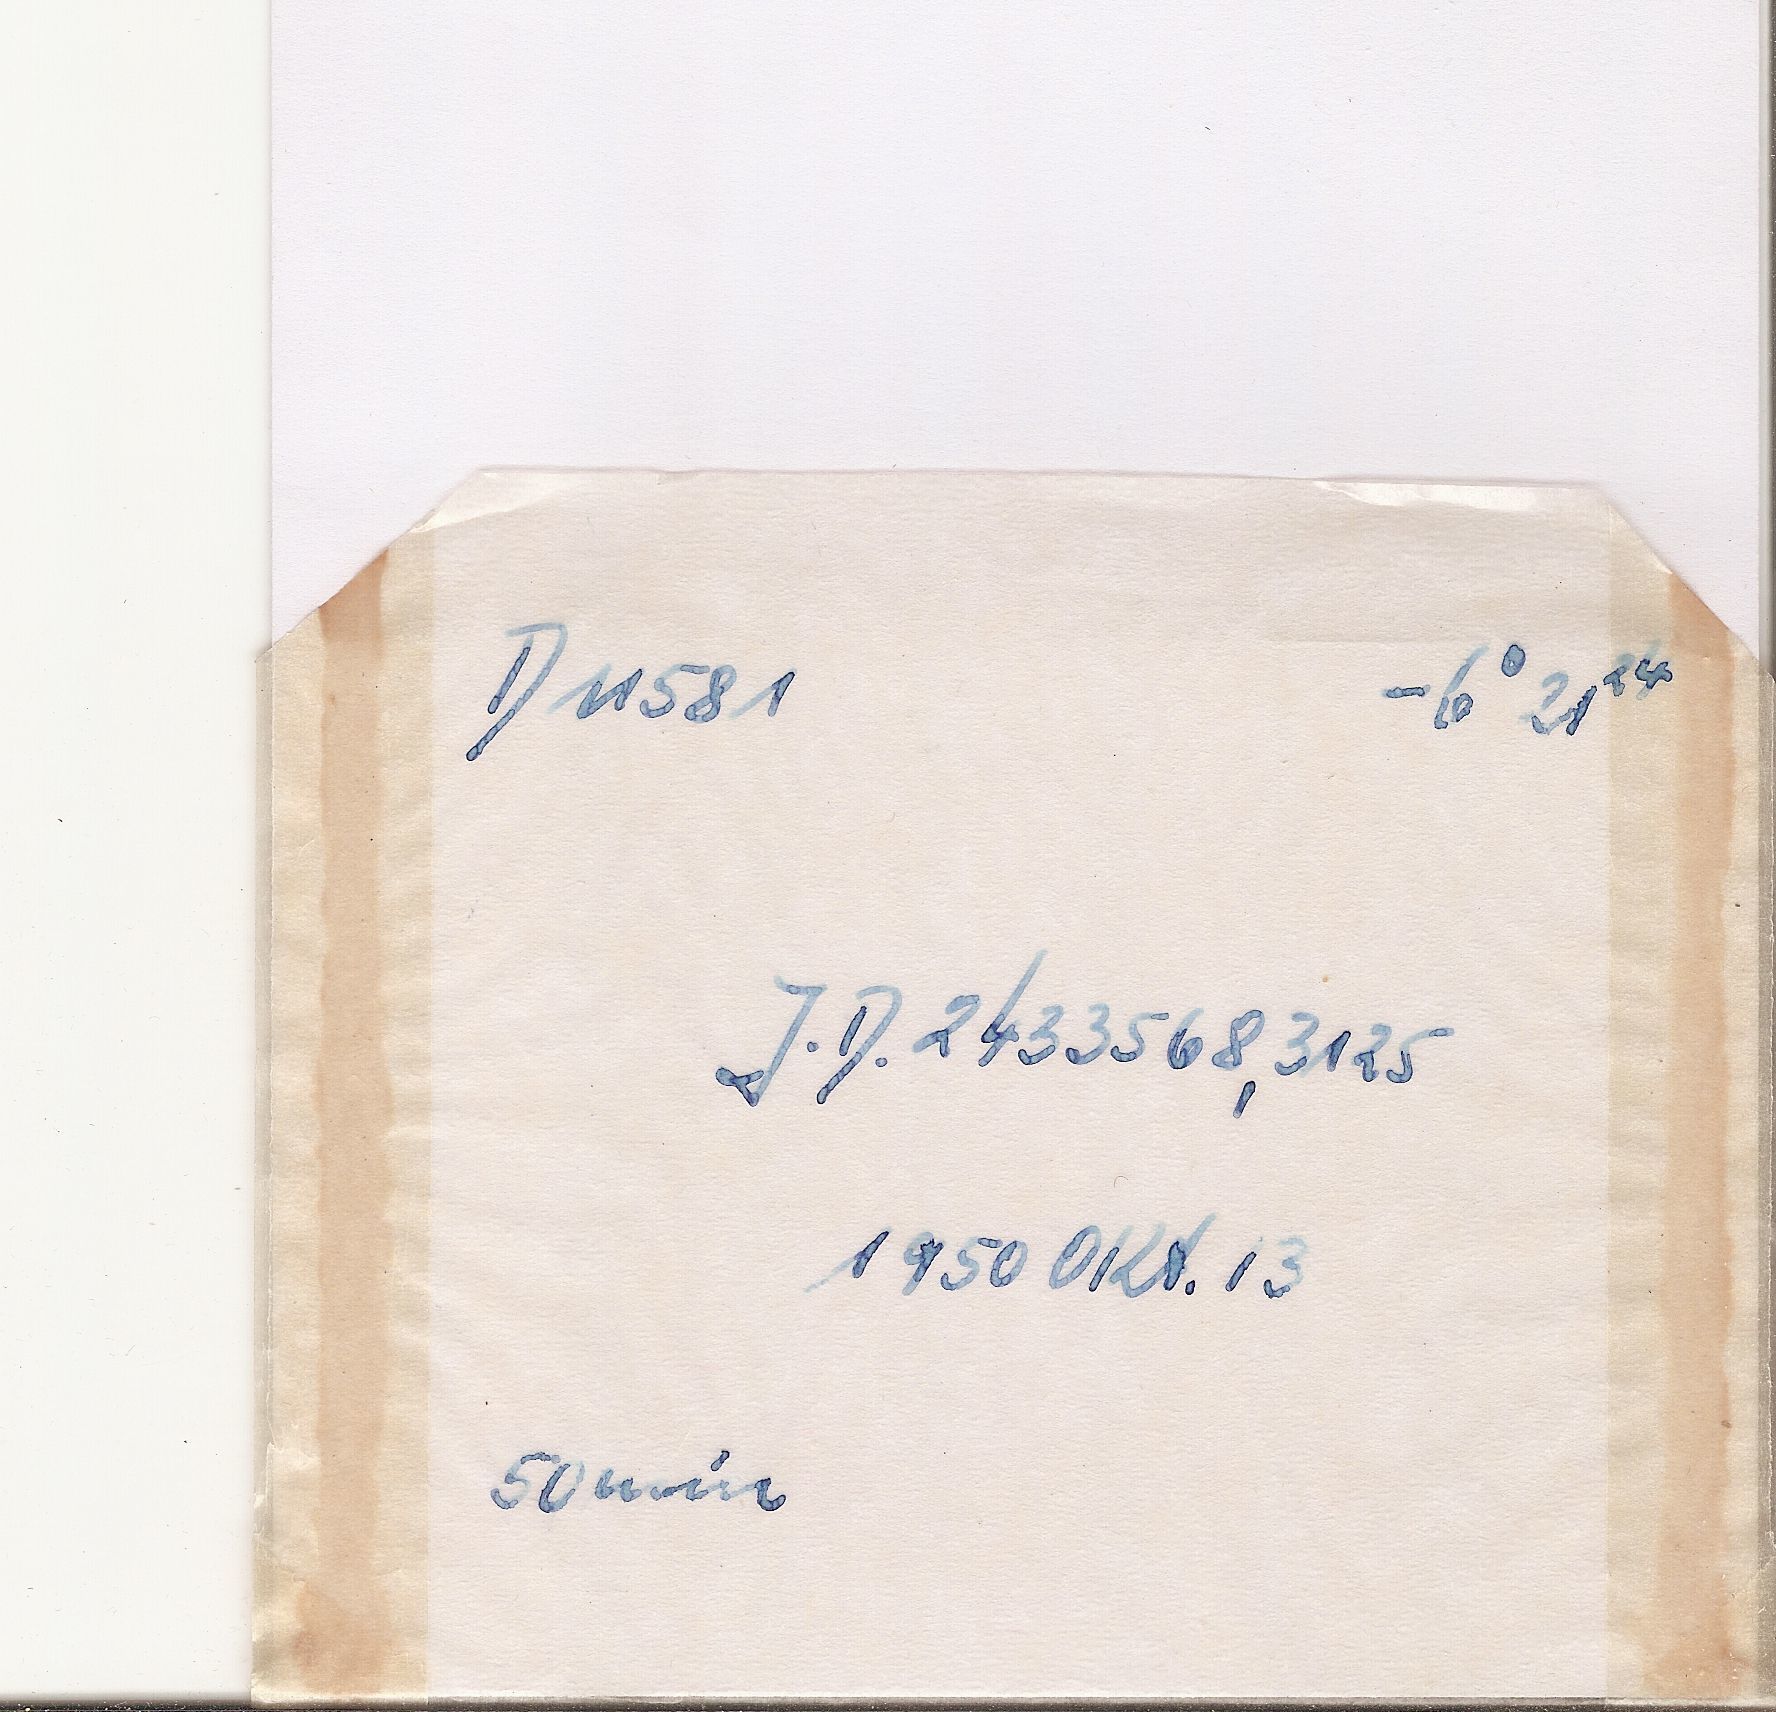 D 11581 -6° 21 24
J.D. 2433568,3125
1950 Okt. 13
50 min